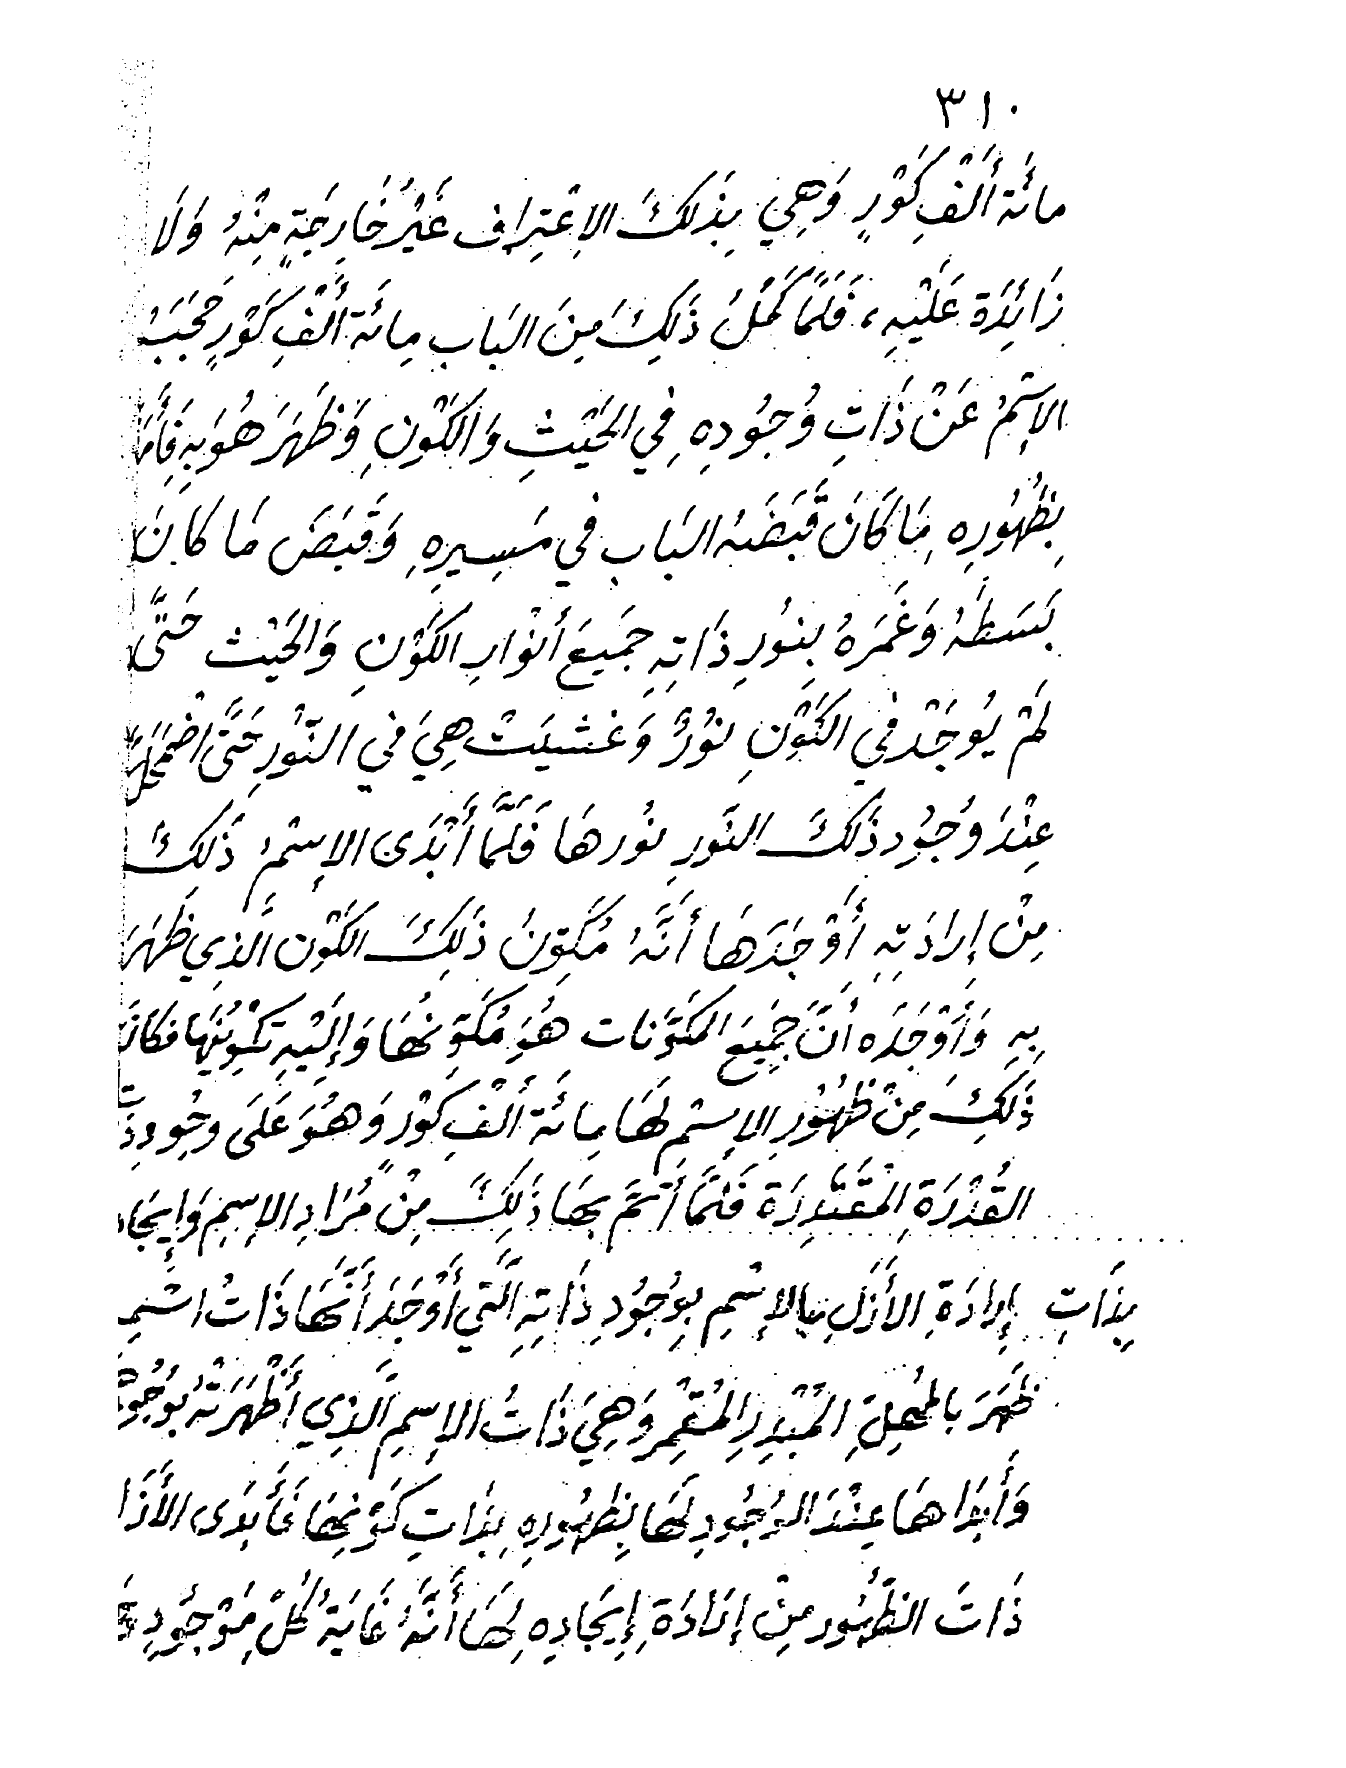 ٣١٠
مائَة أَلْفِ كَوْرٍ وَهِيَ بِذَلِكَ الاِعْتِرافِ غَيْرُ خَارِجَةٍ مِنْهُ وَلَا
زَائِدَة عَلَيْهِ، فَلَمَّا كَمُلَ ذَلِكَ مِنَ البَابِ مِائَة أَلْفِ كَوْرٍ حُجِبَ
الإِسْمُ عَنْ ذَاتِ وُجُودِهِ فِي الحَيْثِ وَالكَوْنِ وَظَهَرَ هُوَ بِهِ فَأَمَا
بِظُهُورِهِ مَا كَانَ قَبَضَهُ البَابِ فِي مَسِيرِهِ وَقَبَضَ مَا كَانَ
بَسَطَهُ وَغَمَرَهُ بِنُورِ ذَاتِهِ جَمِيعَ أَنْوَارِ الكَوْنِ وَالحَيْث حَتَّى
لَمْ يُوجَدْ فِي الكَوْنِ نُورٌ وَغَشِيَتْ هِيَ فِي النُّورِ حَتَّى اضْمَحَلَّ
عِنْدَ وُجُودِ ذَلِكَ النُّورِ نُورهَا فَلَمَّا أَبْدَى الإِسْمُ ذَلِكَ
مِنْ إِرادَتِهِ أَوْجَدَهَا أَنَّهُ مُكَوِّنُ ذَلِكَ الكَوْن الَّذِي ظَهَرَ
بِهِ وَأَوْجَدَه أَنَّ جَمِيعَ المُكَوَّنَات هُوَ مُكَوِّنُهَا وَإِلَيْهِ تَكْوِينُهَا فكَانَ
ذَلِكَ مِنْ ظُهُورِ الإِسْمِ لَهَا مِائَة أَلْفِ كَوْر وَهُوَ عَلَى وجُودِ ذَات
القُدْرَةِ المُقْتَدِرَة فَلَمَّا أَتَمَّ بِهَا ذَلِكَ مِنْ مُرَادِ الإِسمِ وَإِيجَاد
بِذَاتِ إِرادَةِ الأَزَلِ بِالإِسْمِ بِوُجُودِ ذَاتِهِ الَّتِي أَوْجَدَ أَنَّهَا ذَاتُ اسْمِ
ظَهَرَ بالمُهِلِّ المُبْدِرِ المُقْمِرِ وَهِيَ ذَاتُ الإِسمِ الَّذِي أَظْهَرَتْهُ بوُجُودِ
وَأَبدَاهَا عِنْدَ الوُجُودِ لَهَا بِظُهُورِهِ بِذَاتِ كَوْنِهَا فَأَبدَى الأَزَل
ذَاتَ الظُّهُورِ مِنْ إِرَادَةِ إِيجَادِهِ لَهَا أَنَّهُ غَايَةُ كُلِّ مَوْجُودٍ